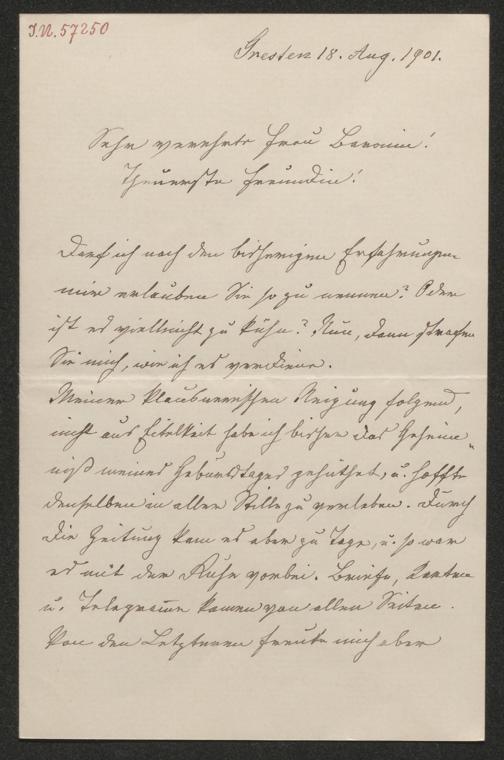 J.N. 57250
Gresten 18. Aug. 1901.
Sehr verehrte Frau Baronin!
Theuerste Freundin!
Darf ich nach den bisherigen Erfahrungen
mir erlauben Sie so zu nennen? Oder
ist es vielleicht zu kühn? Nun, dann strafen
Sie mich, wie ich es verdiene.
Meiner Neigung folgend,
nicht aus Eitelkeit habe ich bisher das Geheim-
niß meines Geburtstages gehüthet, u. hoffte
denselben in aller Stille zu verleben. Durch
die Zeitung kam es aber zu Tage, u. so war
es mit der Ruhe vorbei. Briefe, Karten
u. Telegramme kamen von allen Seiten.
Von den Letzteren freute mich aber